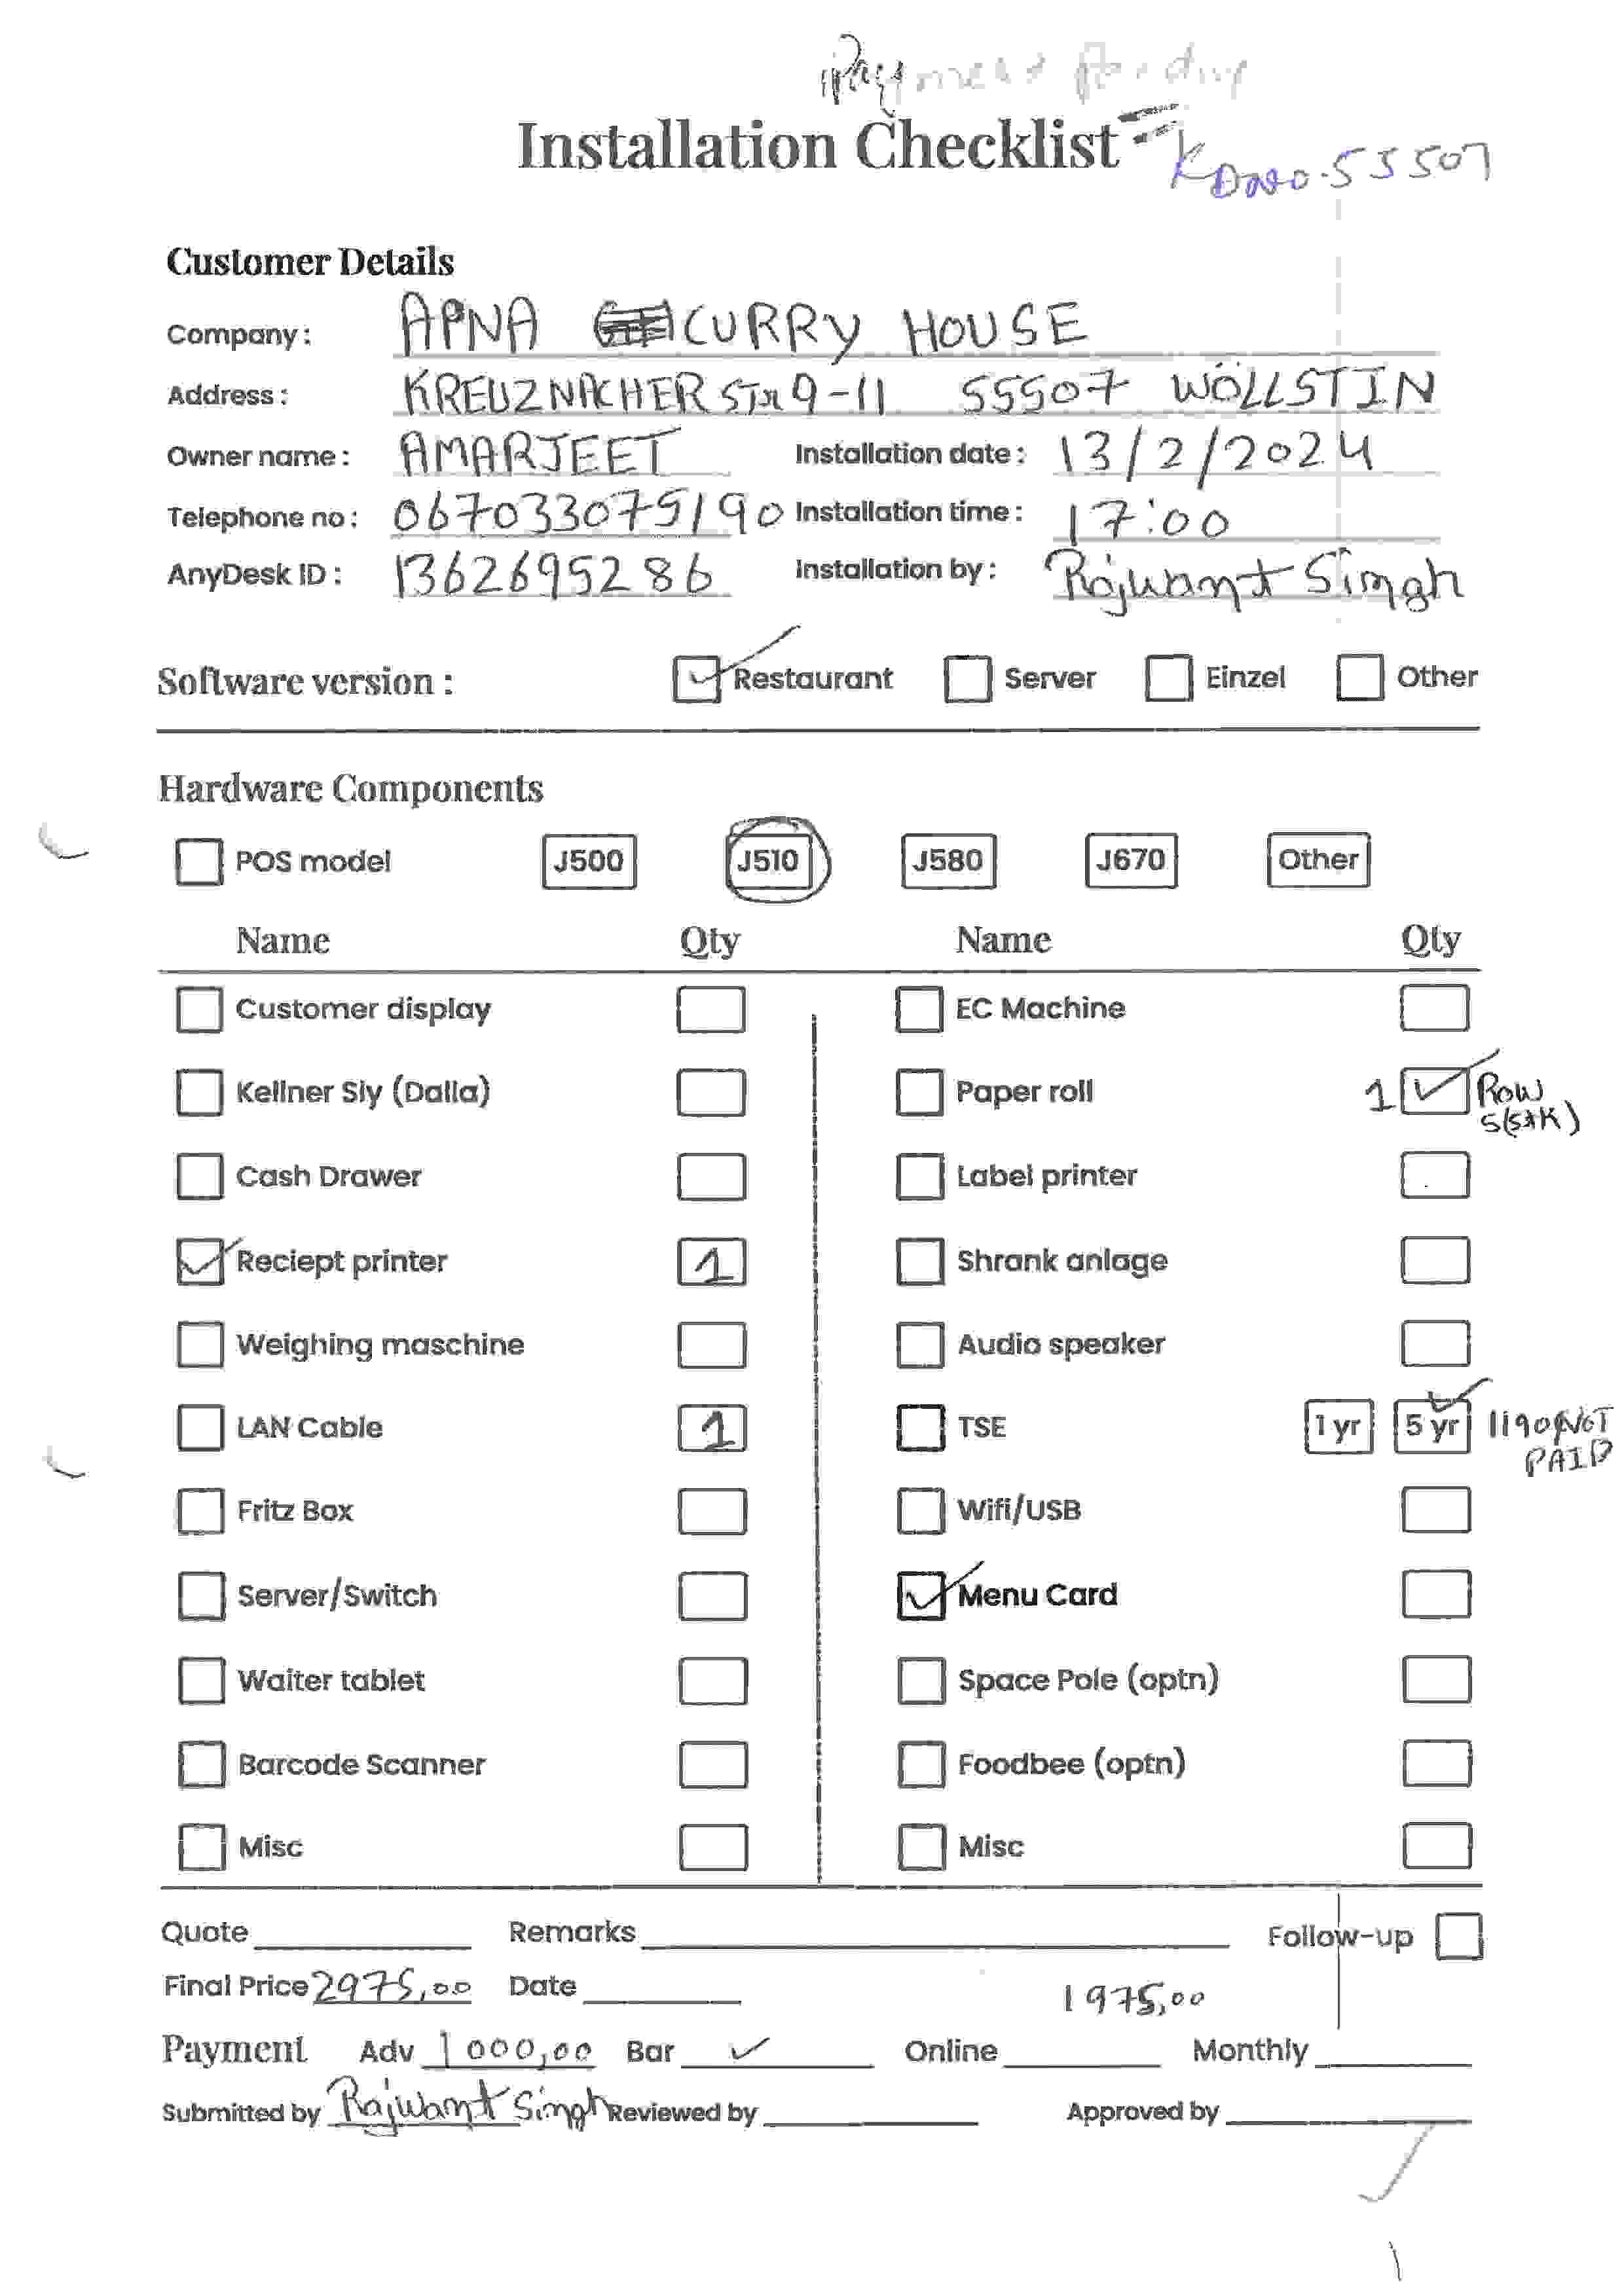 Payment Pending
Installation Checklist
KDNO.55507
Customer Details
Company: APNA CURRY HOUSE
Address: KREUZNACHER STR 9-11 55507 WÖLLSTIN
Owner name: AMARJEET Installation date: 13/2/2024
Telephone no: 067033075190 Installation time: 17:00
AnyDesk ID: 1362695286 Installation by: Rajwant Singh
Software version: Restaurant Server Einzel Other
Hardware Components
POS model J500 J510 J580 J670 Other
Name Qty Name Qty
Customer display EC Machine
Kellner Sly (Dalla) Paper roll 1 Row
5(stk)
Cash Drawer Label printer
Reciept printer 1 Shrank anlage
Weighing maschine Audio speaker
LAN Cable 1 TSE 1 yr 5 yr 1190/NOT
PAID
Fritz Box Wifi/USB
Server/Switch Menu Card
Waiter tablet Space Pole (optn)
Barcode Scanner Foodbee (optn)
Misc Misc
Quote Remarks Follow-up
Final Price 2975,00 Date 1975,00
Payment Adv 1000,00 Bar Online Monthly
Submitted by Rajwant Singh Reviewed by Approved by